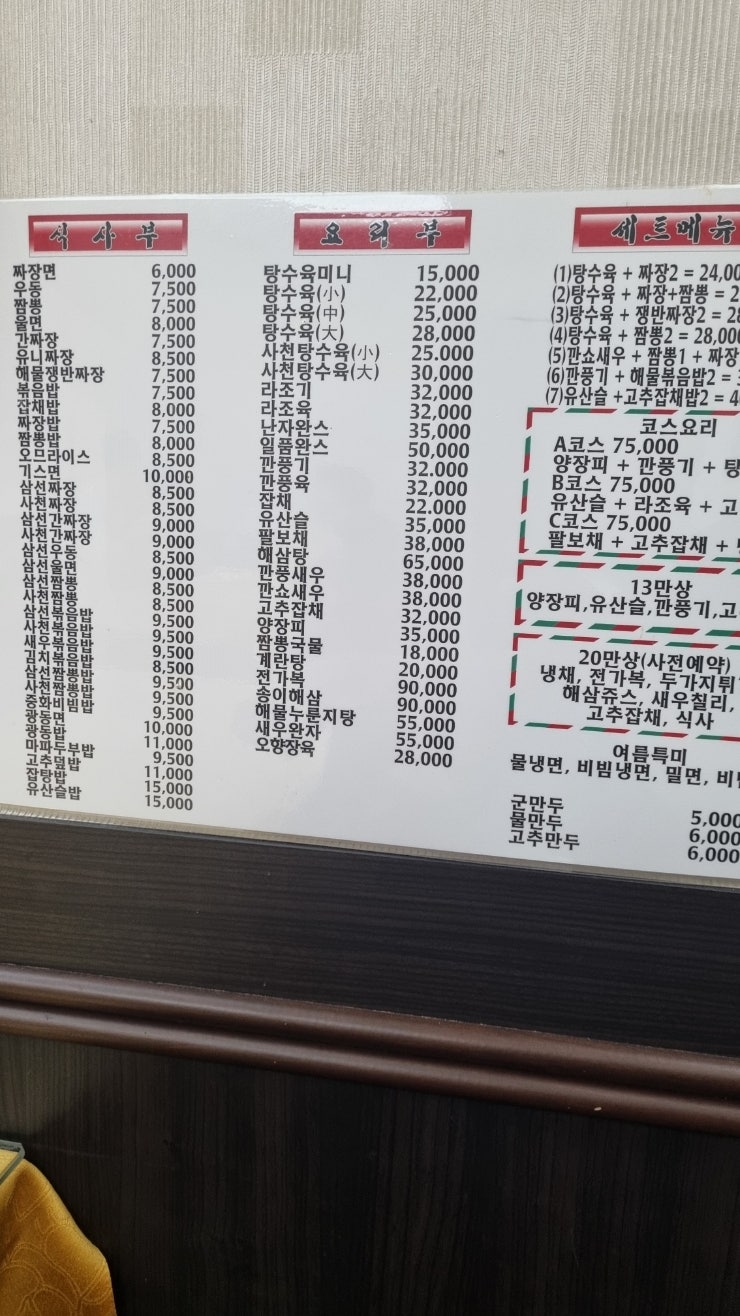 식 사 부
짜장면 6,000
우동 7,500
짬뽕 7,500
울면 8,000
간짜장 7,500
유니짜장 8,500
해물쟁반짜장 7,500
볶음밥 7,500
잡채밥 8,000
짜장밥 7,500
짬뽕밥 8,000
오므라이스 8,500
기스면 10,000
삼선짜장 8,500
사천짜장 8,500
삼선간짜장 9,000
사천간짜장 9,000
삼선우동 8,500
삼선울면 9,000
삼선짬뽕 8,500
사천짬뽕 8,500
삼선볶음밥 9,500
사천볶음밥 9,500
새우볶음밥 9,500
김치볶음밥 8,500
삼선짬뽕밥 9,500
사천짬뽕밥 9,500
중화비빔밥 9,500
광동면 10,000
광동밥 11,000
마파두부밥 9,500
고추덮밥 11,000
잡탕밥 15,000
유산슬밥 15,000
요 리 부
탕수육미니 15,000
탕수육(小) 22,000
탕수육(中) 25,000
탕수육(大) 28,000
사천탕수육(小) 25.000
사천탕수육(大) 30,000
라조기 32,000
라조육 32,000
난자완스 35,000
일품완스 50,000
깐풍기 32.000
깐풍육 32,000
잡채 22.000
유산슬 35,000
팔보채 38,000
해삼탕 65,000
깐풍새우 38,000
깐쇼새우 38,000
고추잡채 32,000
양장피 35,000
짬뽕국물 18,000
계란탕 20,000
전가복 90,000
송이해삼 90,000
해물누룬지탕 55,000
새우완자 55,000
오향장육 28,000
세트메뉴
(1)탕수육 + 짜장2 = 24,00
(2)탕수육 + 짜장+짬뽕 = 2
(3)탕수육 + 쟁반짜장2 = 28
(4)탕수육 + 짬뽕2 = 28,00
(5)깐쇼새우 + 짬뽕1 + 짜장
(6)깐풍기 + 해물볶음밥2 =
(7)유산슬 +고추잡채밥2 = 4
코스요리
A코스 75,000
양장피 + 깐풍기 + 탕
B코스 75,000
유산슬 + 라조육 + 고
C코스 75,000
팔보채 + 고추잡채 +
13만상
양장피,유산슬,깐풍기,고
20만상(사전예약)
냉채, 전가복, 두가지튀
해삼쥬스, 새우칠리,
고추잡채, 식사
여름특미
물냉면, 비빔냉면, 밀면, 비
군만두 5,000
물만두 6,000
고추만두 6,000